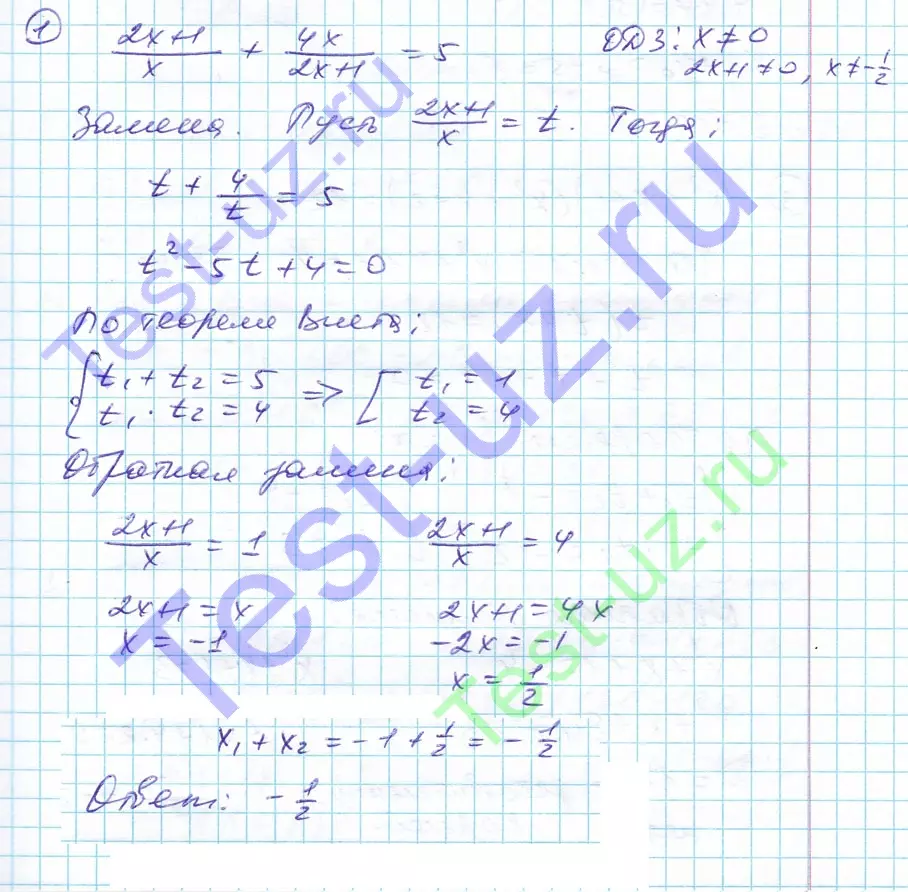 1
(2x+1)/x + 4x/(2x+1) = 5
ОДЗ: x ≠ 0
2x+1 ≠ 0, x ≠ -1/2
Замена. Пусть (2x+1)/x = t. Тогда:
t + 4/t = 5
t² - 5t + 4 = 0
По теореме Виета:
{ t₁ + t₂ = 5 => [ t₁ = 1
t₁ · t₂ = 4 t₂ = 4
Обратная замена:
(2x+1)/x = 1 (2x+1)/x = 4
2x+1 = x 2x+1 = 4x
x = -1 -2x = -1
x = 1/2
x₁ + x₂ = -1 + 1/2 = -1/2
Ответ: -1/2
Test-uz.ru
Test-uz.ru
Test-uz.ru